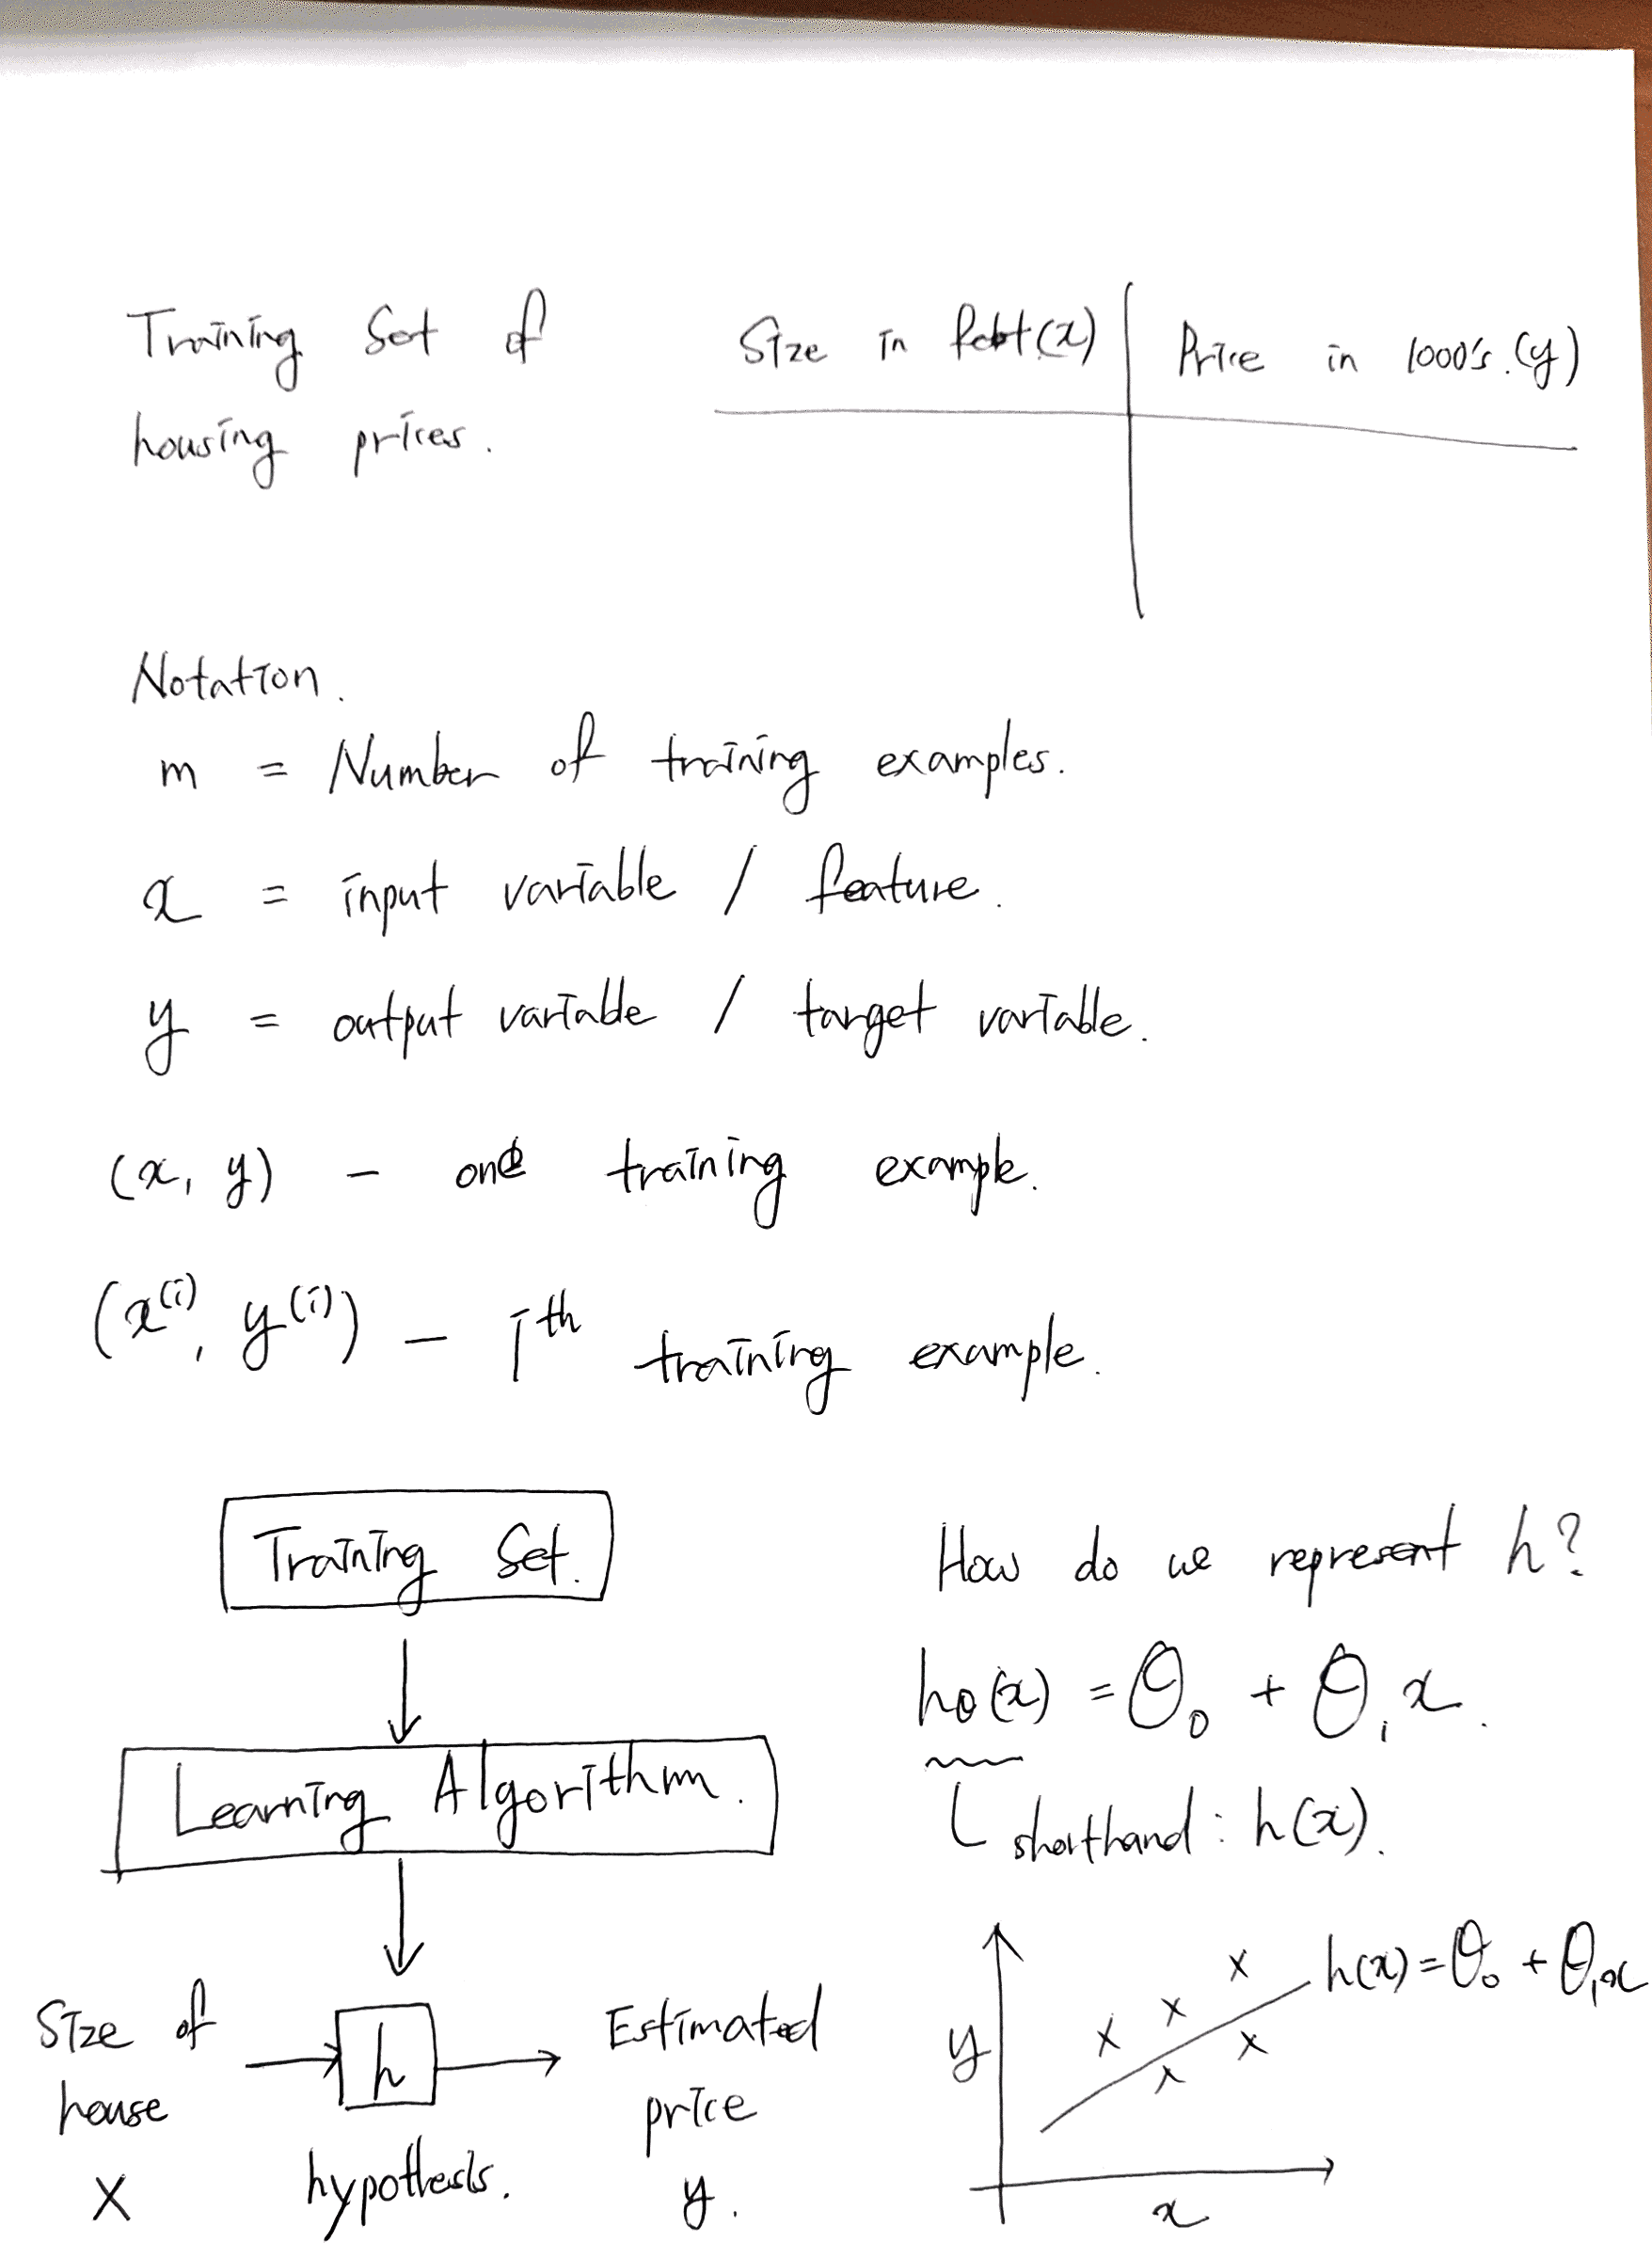 Training Set of
housing prices.
Size in feet (x)
Price in 1000's. (y)
Notation.
m = Number of training examples.
x = input variable / feature.
y = output variable / target variable.
(x, y) - one training example.
(x⁽ⁱ⁾, y⁽ⁱ⁾) - iᵗʰ training example.
Training Set.
Learning Algorithm.
Size of
house
X
h
hypothesis.
Estimated
price
y.
How do we represent h?
hθ(x) = θ₀ + θ₁x.
shorthand: h(x).
h(x) = θ₀ + θ₁x
y
x